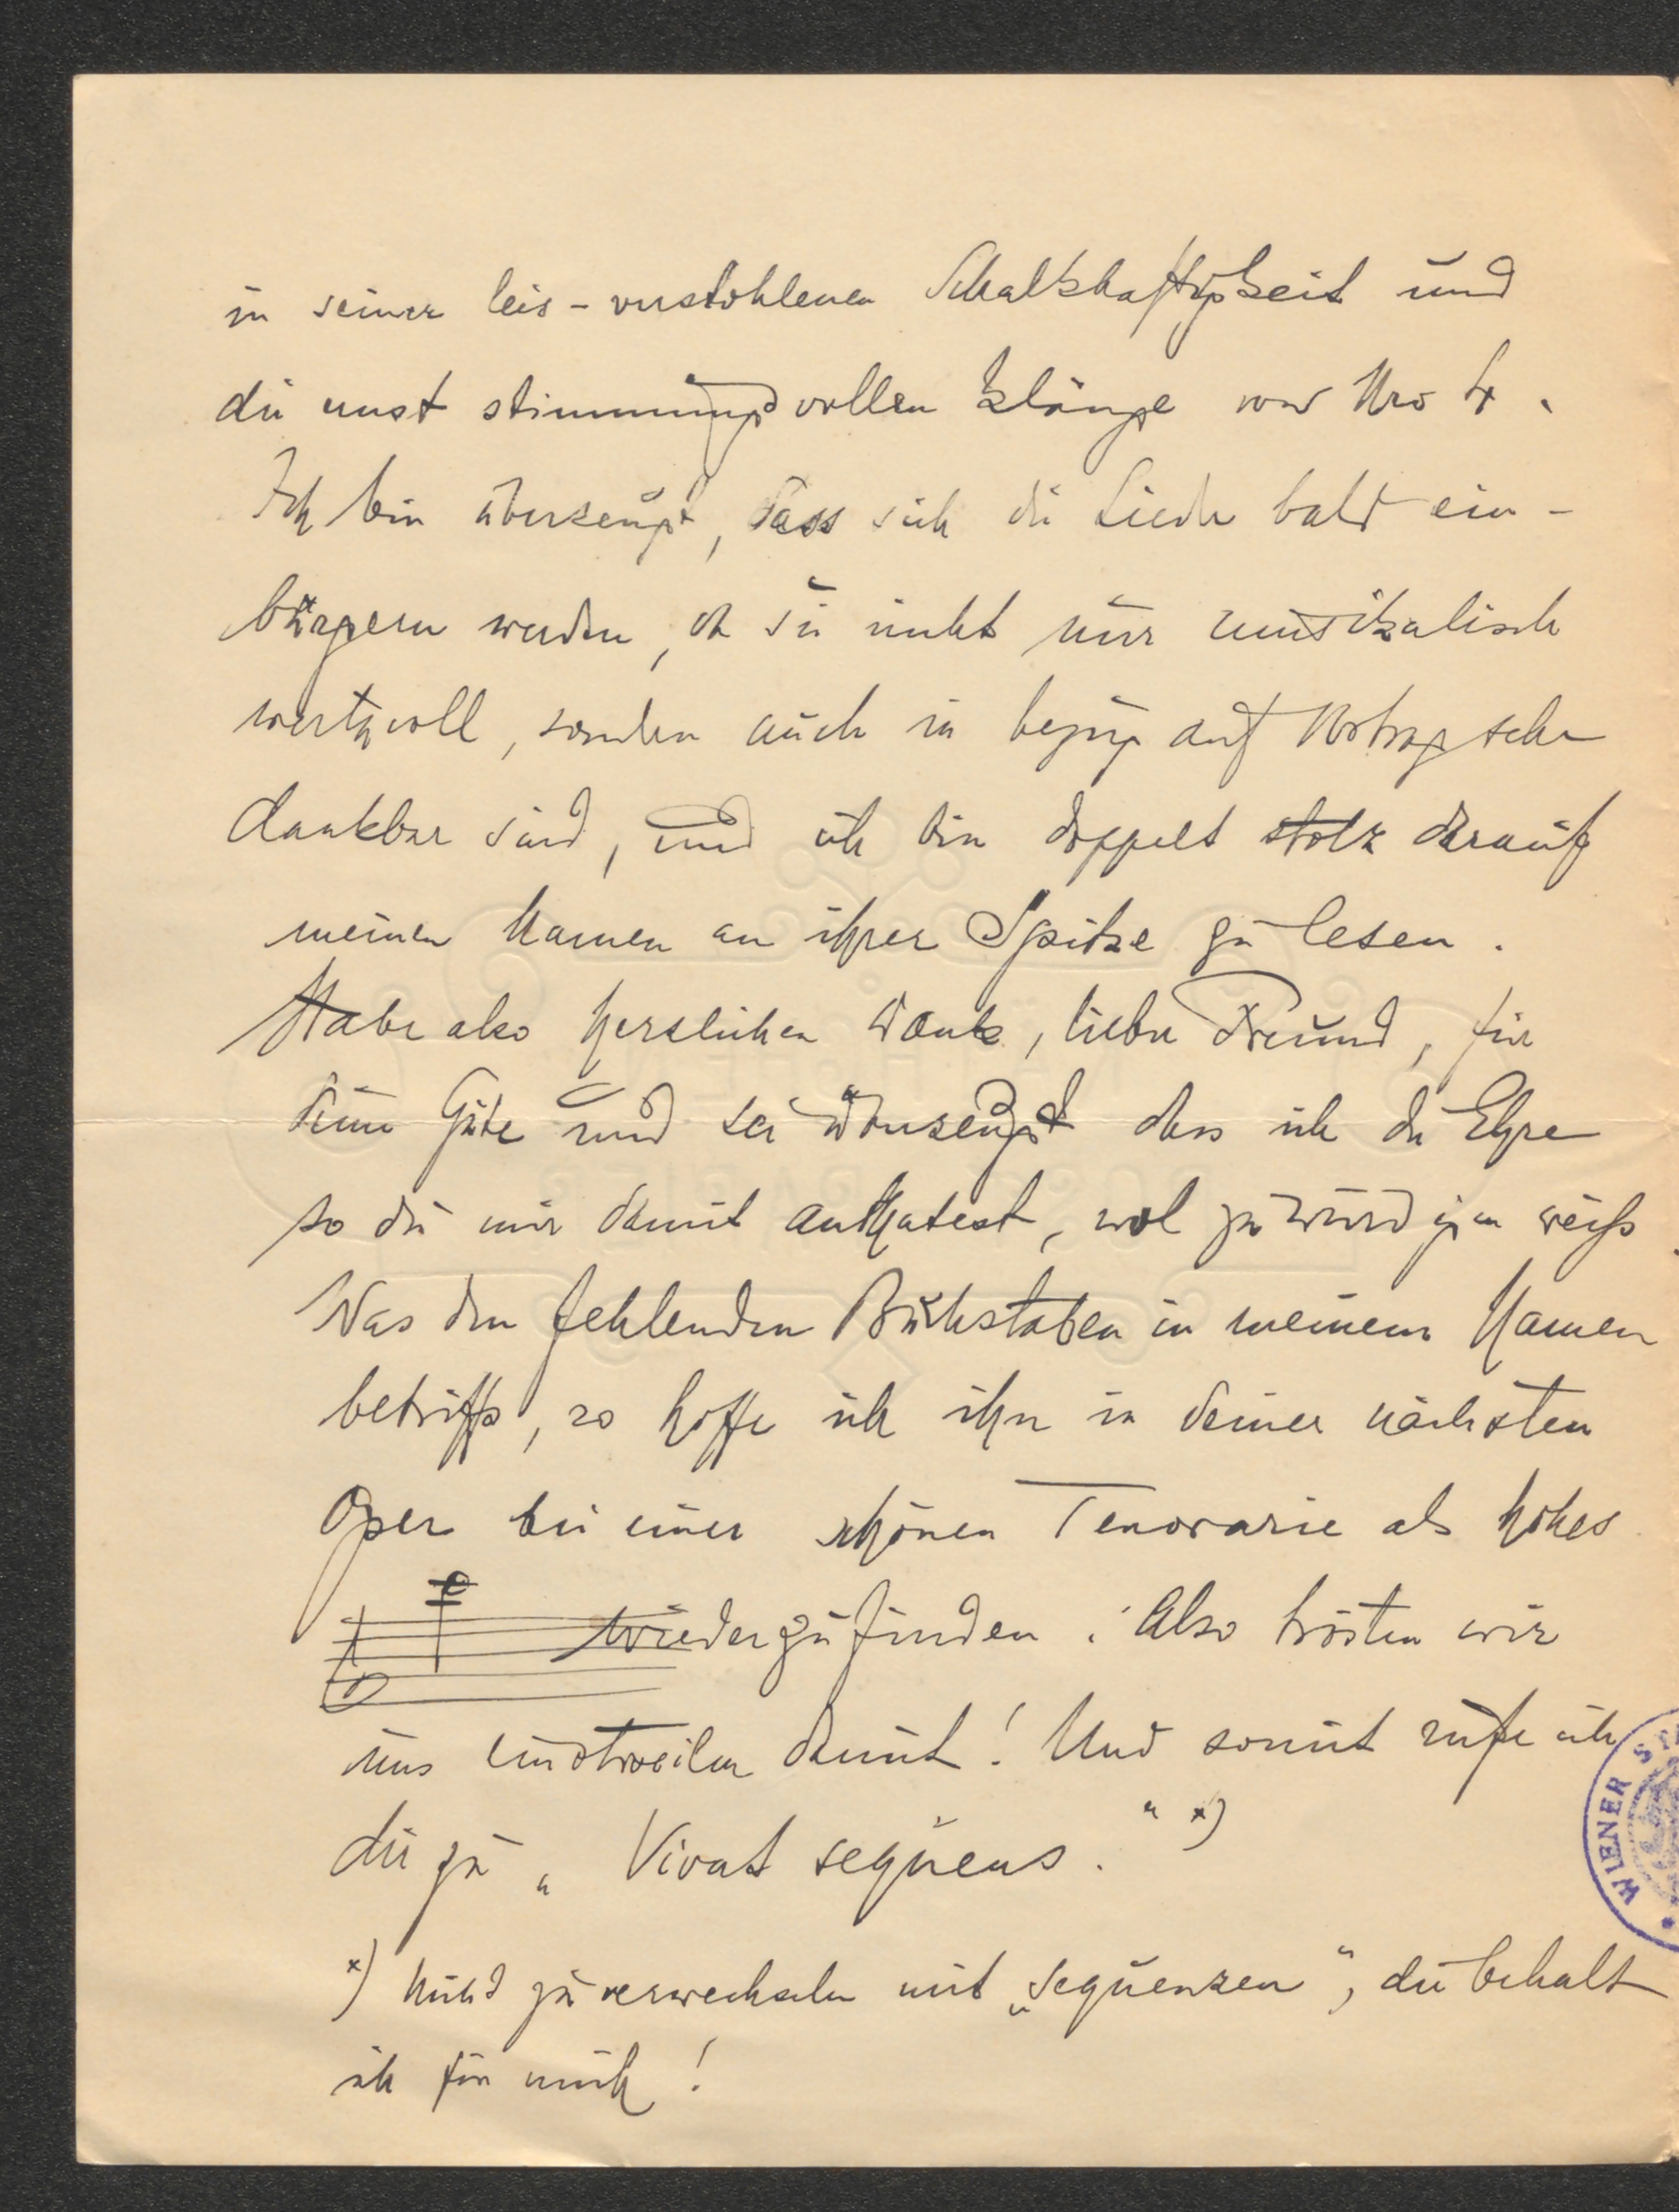 in seiner leis-verstohlenen Schalkhaftigkeit und
die ernst stimmungsvollen Klänge von Nro 4.
Ich bin überzeugt, dass sich die Lieder bald ein-
bürgern werden, da sie nicht nur musikalisch
wertvoll, sondern auch in bezug auf Vortrag sehr
dankbar sind, und ich bin doppelt stolz darauf
meinen Namen an ihrer Spitze zu lesen.
Habe also herzlichen Dank, lieber Freund, für
deine Güte und sei überzeugt dass ich die Ehre
so du mir damit anthatest, wol zu würdigen weiß.
Was den fehlenden Buchstaben in meinem Namen
betrifft, so hoffe ich ihn in deiner nächsten
Oper bei einer schönen Tenorarie als hohes
wiederzufinden. Also trösten wir
uns einstweilen damit! Und somit rufe ich
dir zu „Vivat sequens.“ *)
*) Nicht zu verwechseln mit „Sequenzen“, die behalt
ich für mich!
WIENER ST